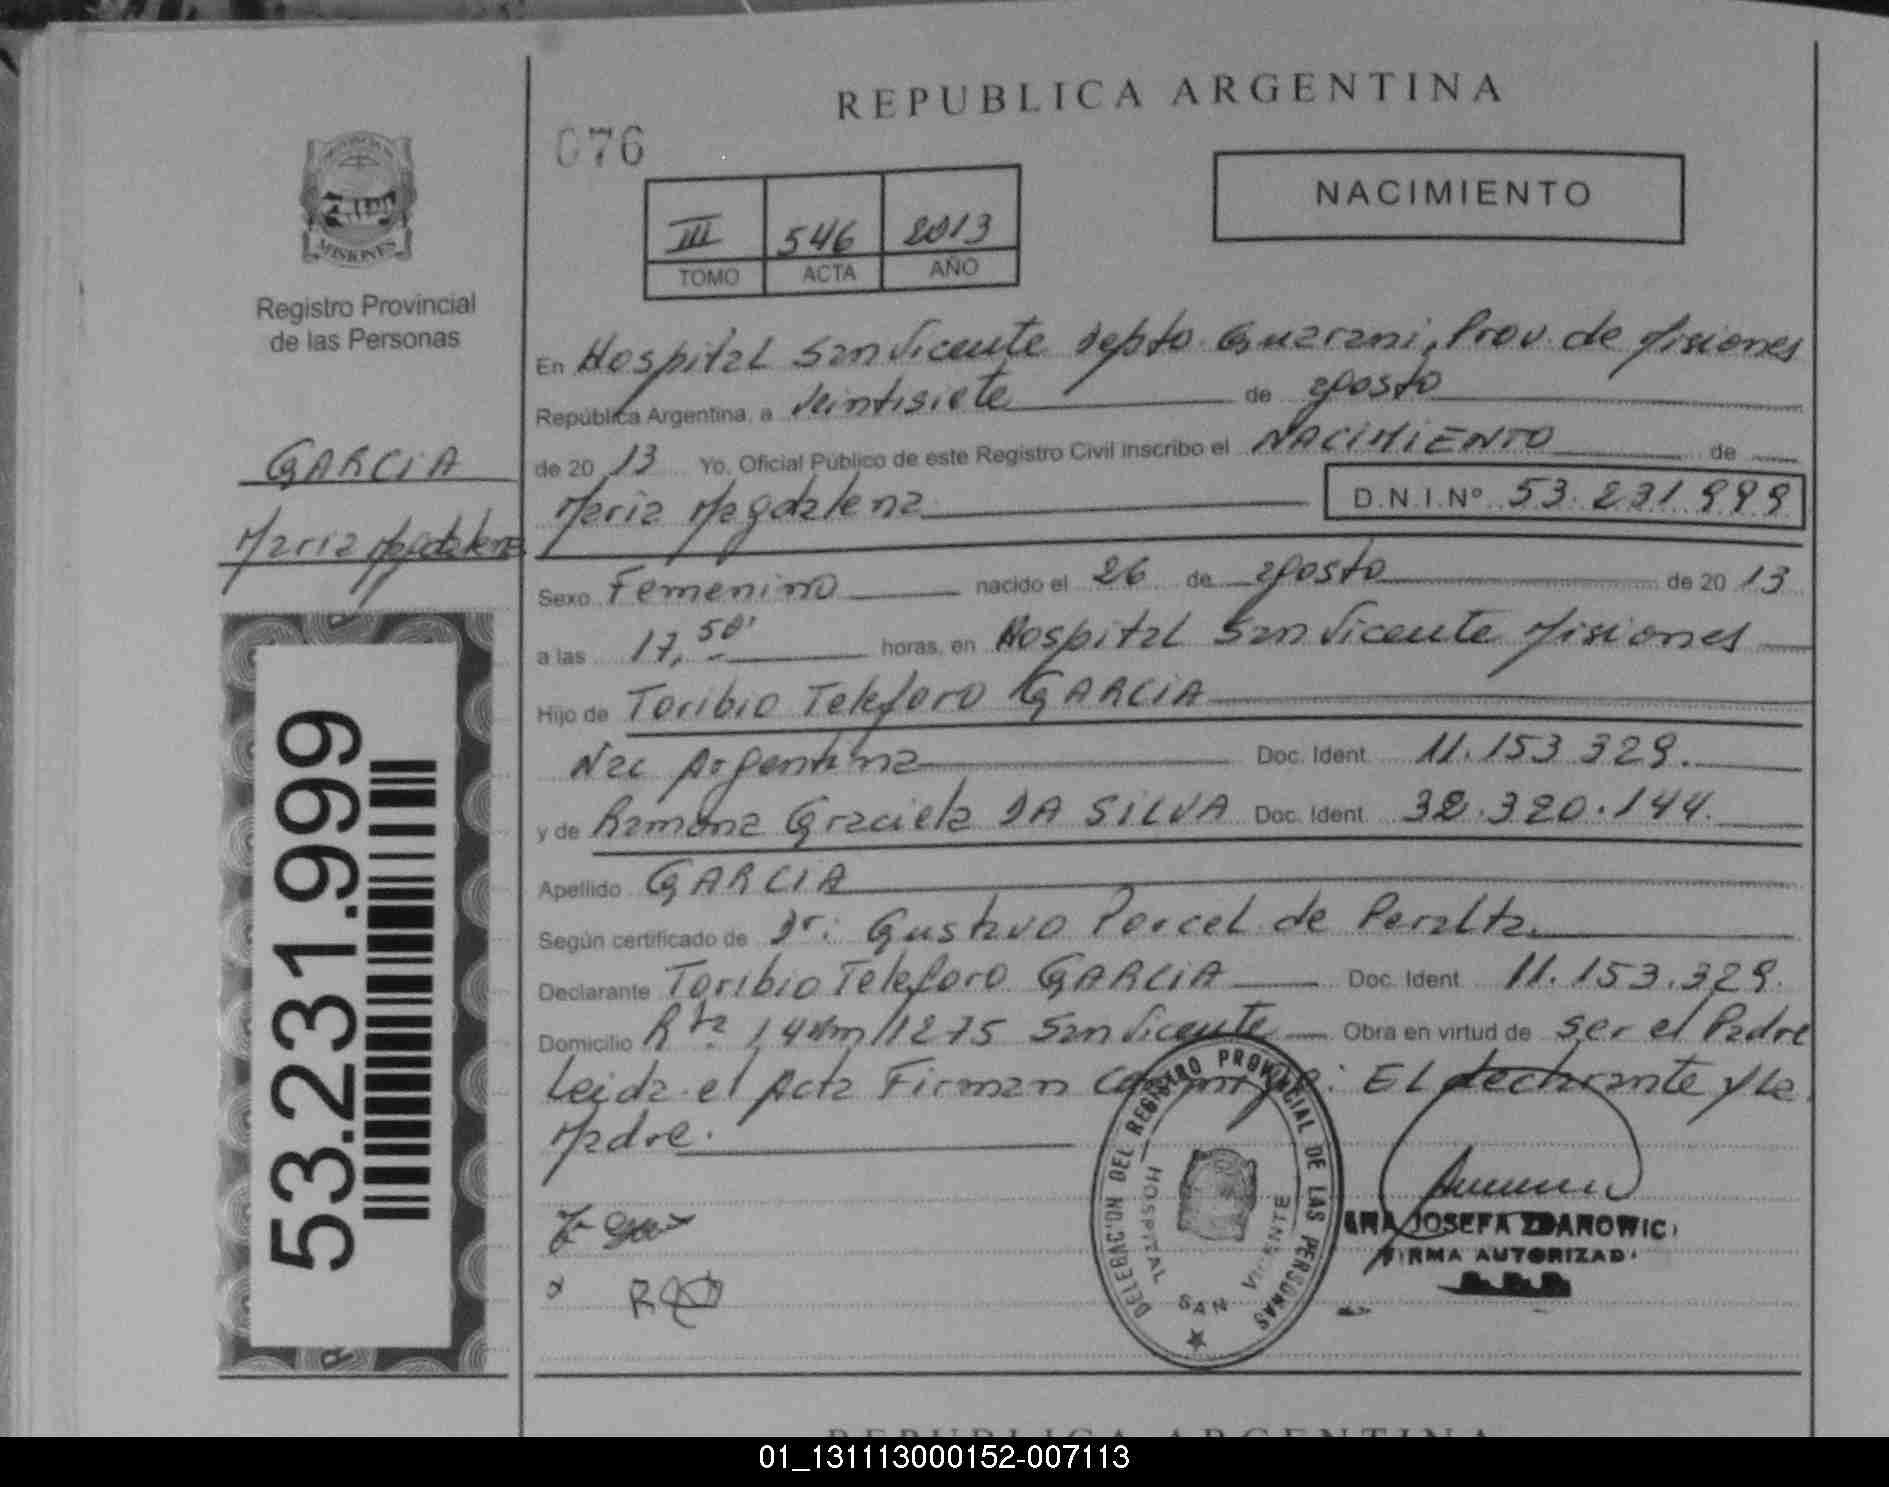 REPUBLICA ARGENTINA
076
NACIMIENTO
III 546 2013
TOMO ACTA AÑO
MISIONES
Registro Provincial
de las Personas
GARCIA
Maria Magdalena
53.231.999
En Hospital San Vicente Depto Guarani, Prov. de Misiones
República Argentina, a Veintisiete de agosto
de 20 13 Yo, Oficial Público de este Registro Civil inscribo el NACIMIENTO de
Maria Magdalena D.N.I.Nº 53.231.999
Sexo Femenino nacido el 26 de agosto de 20 13
a las 17,50' horas, en Hospital San Vicente Misiones
Hijo de Toribio Teleforo GARCIA
Nac Argentina Doc. Ident. 11.153.329.
y de Ramona Graciela DA SILVA Doc. Ident. 32.320.144.
Apellido GARCIA
Según certificado de Dr: Gustavo Porcel de Peralta.
Declarante Toribio Teleforo GARCIA Doc. Ident. 11.153.329.
Domicilio Rta 14 km 1275 San Vicente Obra en virtud de Ser el Padre
Leida el Acta Firman Conmigo: El declarante y La
Madre.
DELEGACION DEL REGISTRO PROVINCIAL DE LAS PERSONAS
HOSPITAL SAN VICENTE
JOSEFA
FIRMA AUTORIZADA
REPUBLICA ARGENTINA
01_131113000152-007113